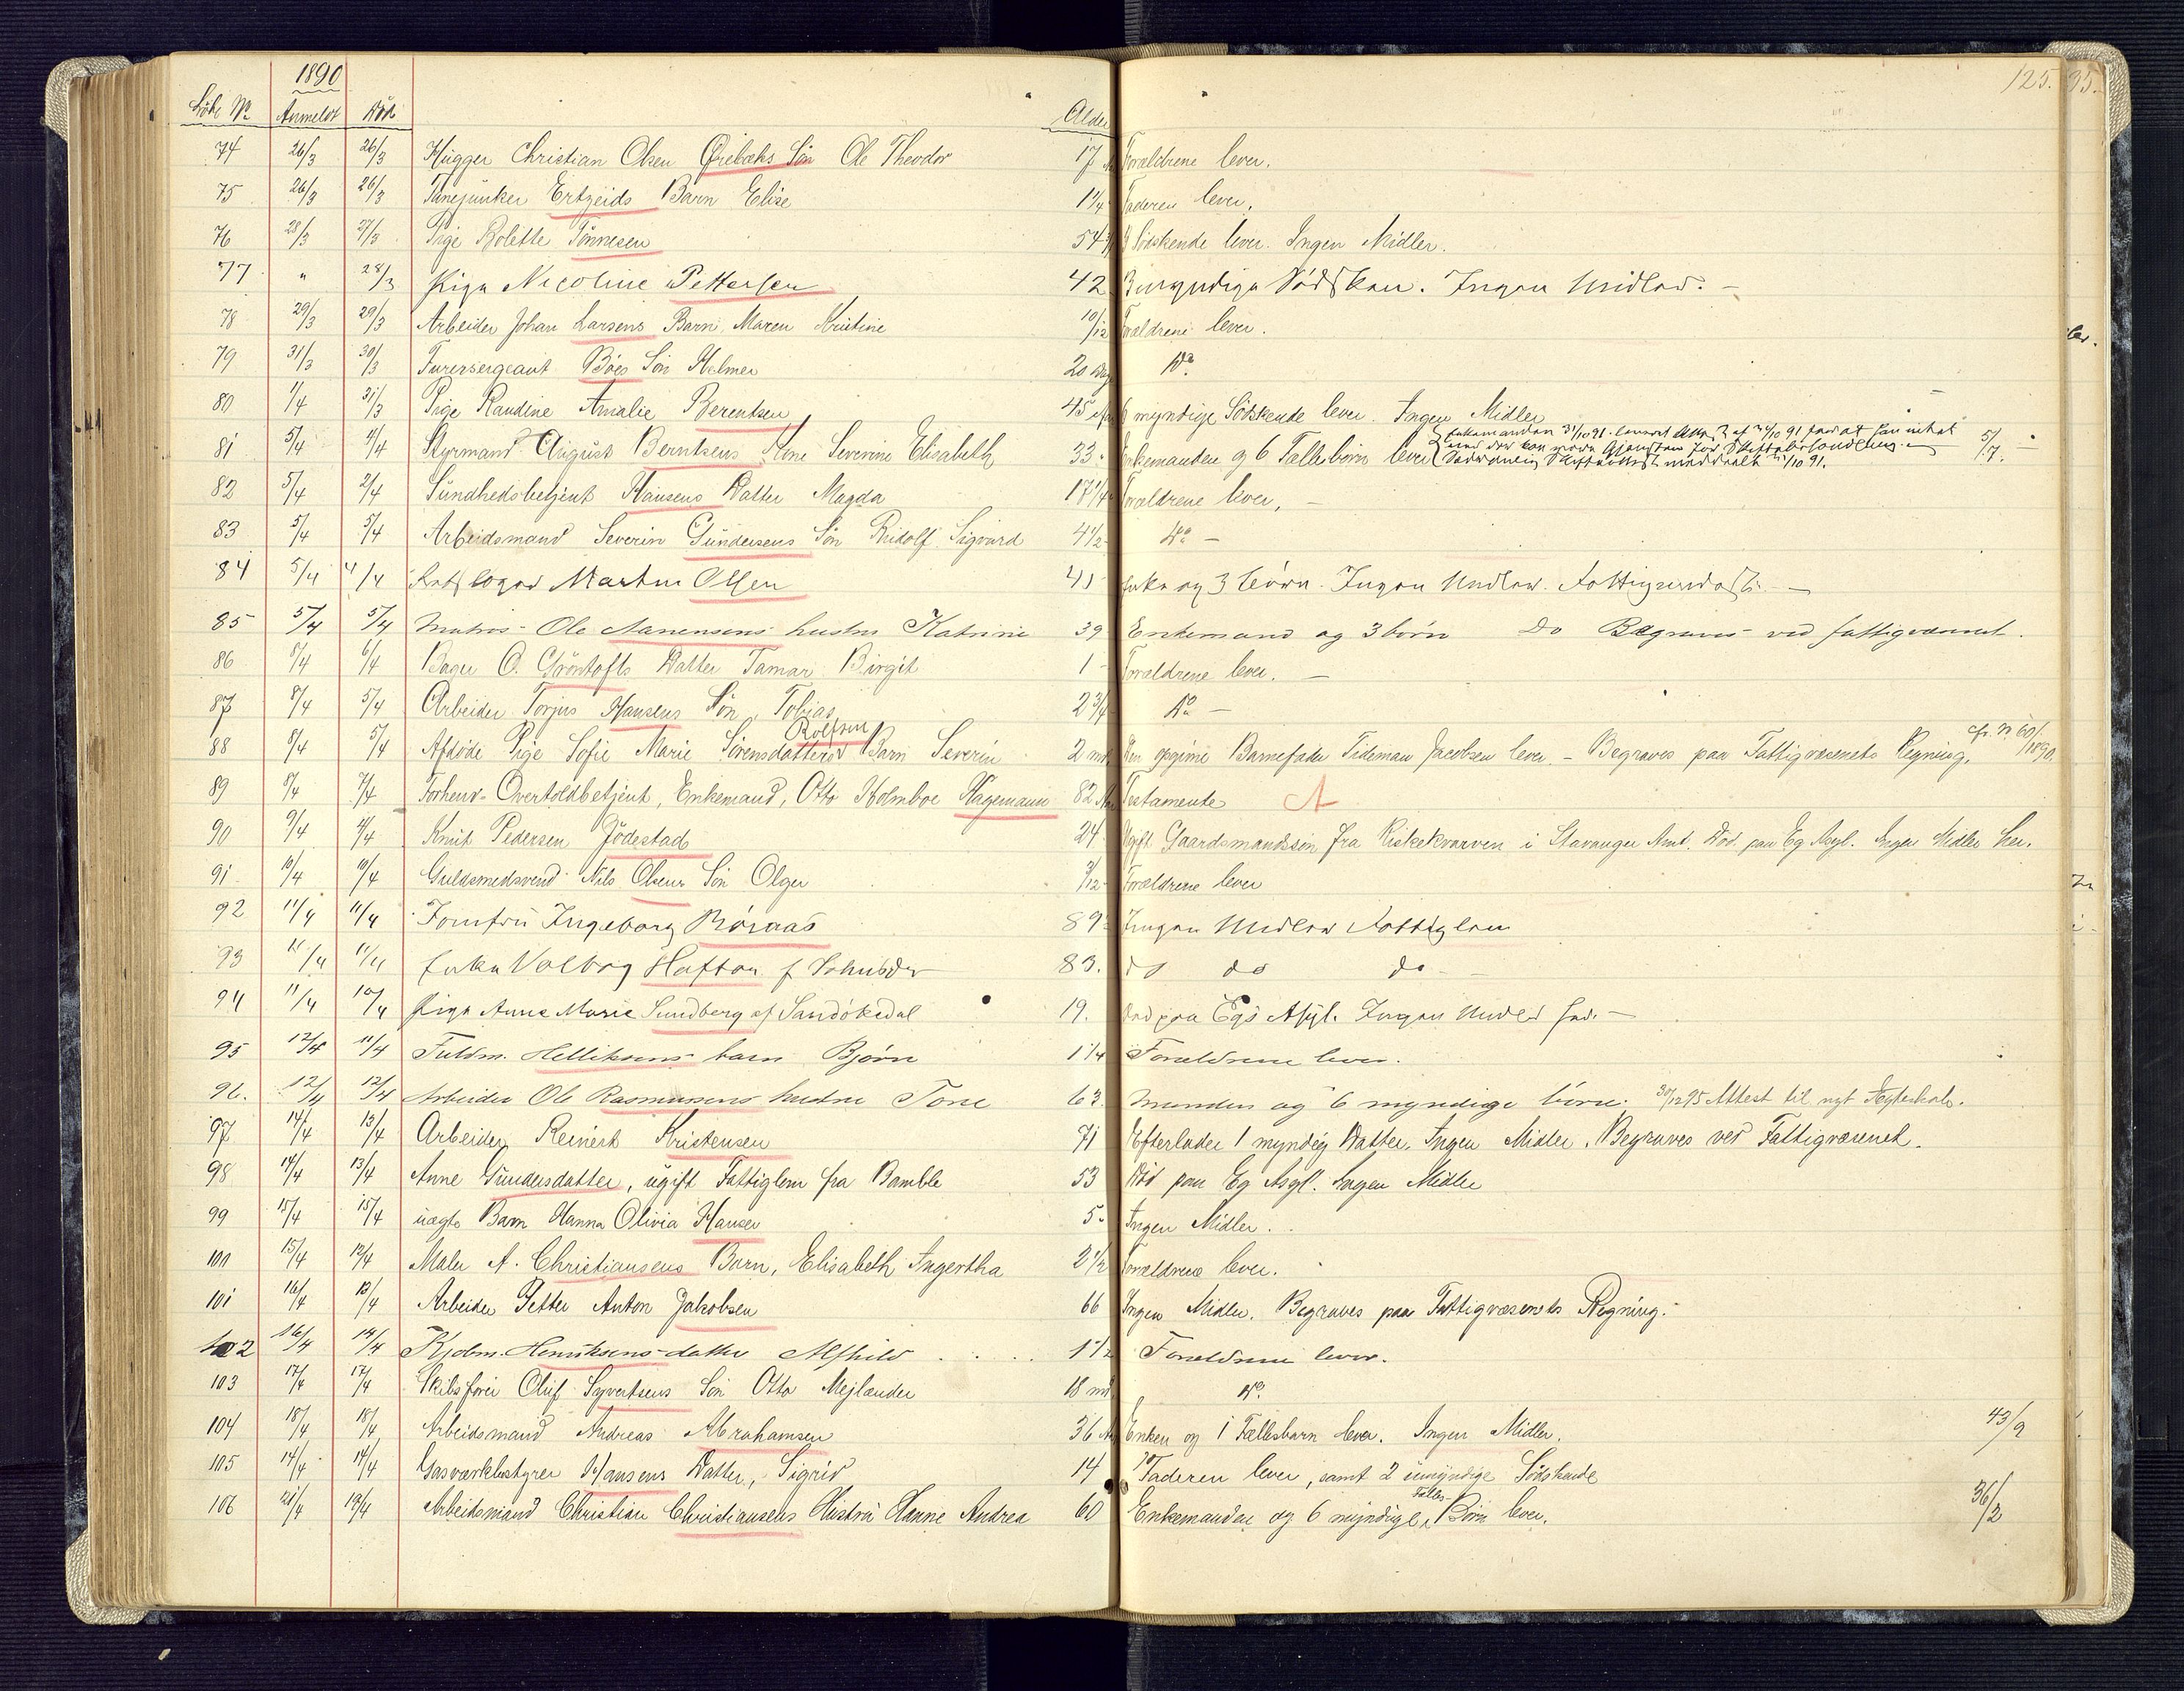 125. 35.
1890
Löbe No Anmeldt Död Alder
74 26/3 26/3 Hugger Christian Olsen Öiebæks Sön Ole Theodor 17 Forældrene lever.
75 26/3 26/3 Barn Elise 1 1/4 Faderen lever.
76 28/3 27/3 Pige Rolette Tönnesen 54 Södskende lever. Ingen Midler.
77 " 28/3 Pige Nicoline Pettersen 42 3 umyndige Södsken. Ingen Midler. -
78 29/3 29/3 Arbeider Johan Larsens Barn Maren Kristine 10/12 Forældrene lever.
79 31/3 30/3 Furersergeant Böes Sön Helmer 20 Dage Do
80 1/4 31/3 Pige Randine Amalie Berentsen 45 6 myndige Södskende lever. Ingen Midler
81 5/4 4/4 Styrmand August Berntsens Kone Severine Elisabeth 33 Enkemanden og 6 Fællesbörn lever 5/7.
82 5/4 2/4 Sundhedsbetjent Hansens Datter Magda 17 1/4 Forældrene lever, -
83 5/4 5/4 Arbeidsmand Severin Gundersens Sön Rudolf Sigvard 4 1/2 Do -
84 5/4 4/4 Martin Olsen 41 Enke og 3 börn. Ingen Midler.
85 5/4 5/4 Matros Ole Aanensens hustru Katrine 39 Enkemand og 3 börn Do Begraves ved fattigvæsenet.
86 8/4 6/4 Bager O. Gröntofts Datter Tamar Birgit 1 Forældrene lever. -
87 8/4 5/4 Arbeider Torjus Hansens Sön, Tobias 2 3/4 Do -
88 8/4 5/4 Afdöde Pige Sofie Marie Sörensdatters Rolfsen Barn Severin 2 md Den opgivne Barnefader Tideman Jacobsen lever. - Begraves paa Fattigvæsenets Regning. cfr. N 60/1890.
89 8/4 7/4 Forhenv. Overtoldbetjent, Enkemand, Otto Holmboe Hagemann 82 Testamente
90 9/4 4/4 Knut Pedersen Jödestad 24 Ugift Gaardmandssön fra Kiskekvarven i Stavanger Amt. Död paa Eg Asyl. Ingen Midler her.
91 10/4 10/4 Guldsmedsvend Nils Olsens Sön Olger 3/12 Forældrene lever
92 11/4 11/4 Jomfru Ingeborg Röraas 89 Ingen Midler Fattiglem
93 11/4 11/4 Enke Valborg Haftor 83. do do do -
94 11/4 10/4 Pige Anne Marie Sundberg af Sandökedal 19. Död paa Egs Asyl. Ingen Midler her. -
95 12/4 11/4 Fuldm. Helliksens barn Björn 1 1/4 Forældrene lever.
96. 12/4 12/4 Arbeider Ole Rasmussens hustru Tone 63 Manden og 6 myndige börn. 30/12 95 Attest til nyt Ægteskab.
97 14/4 13/4 Arbeider Reinert Kristensen 71 Efterlader 1 myndig Datter. Ingen Midler. Begraves ved Fattigvæsenet.
98 14/4 13/4 Anne Gundersdatter, ugift Fattiglem fra Bamble 53 Död paa Eg Asyl. Ingen Midler
99 15/4 15/4 uægte Barn Hanna Olivia Hansen 5 Ingen Midler.
100 15/4 12/4 Maler A. Christiansens Barn, Elisabeth Ingertha 2 1/2 Forældrene lever.
101 16/4 13/4 Arbeider Petter Anton Jakobsen 66 Ingen Midler. Begraves paa Fattigvæsenets Regning.
102 16/4 14/4 Kjobm. Henriksens datter Alfhild 1 1/2 Forældrene lever.
103 17/4 17/4 Skibsförer Oluf Syvertsens Sön Otto Mejlænder 18 md Do
104 18/4 18/4 Arbeidsmand Andreas Abrahamsen 36 Enken og 1 Fællesbarn lever. Ingen Midler. 43/9
105 14/4 14/4 Gasværkbestyrer Hansens Datter, Sigrid 14 Faderen lever, samt 2 umyndige Södskende
106 21/4 19/4 Arbeidsmand Christian Christiansens Hustru Hanne Andrea 60 Enkemanden og 6 myndige Fælles Börn lever. 36/2